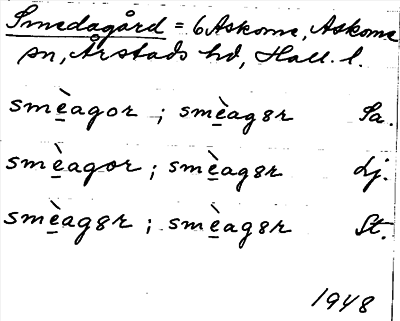 Smedagård = 6 Askome, Askome
sn, Årstads hd, Hall. l.
smè̱agor ; smè̱ag8r Sa.
smè̱agor ; smè̱ag8r Lj.
smè̱ag8r ; smè̱ag8r St.
1948